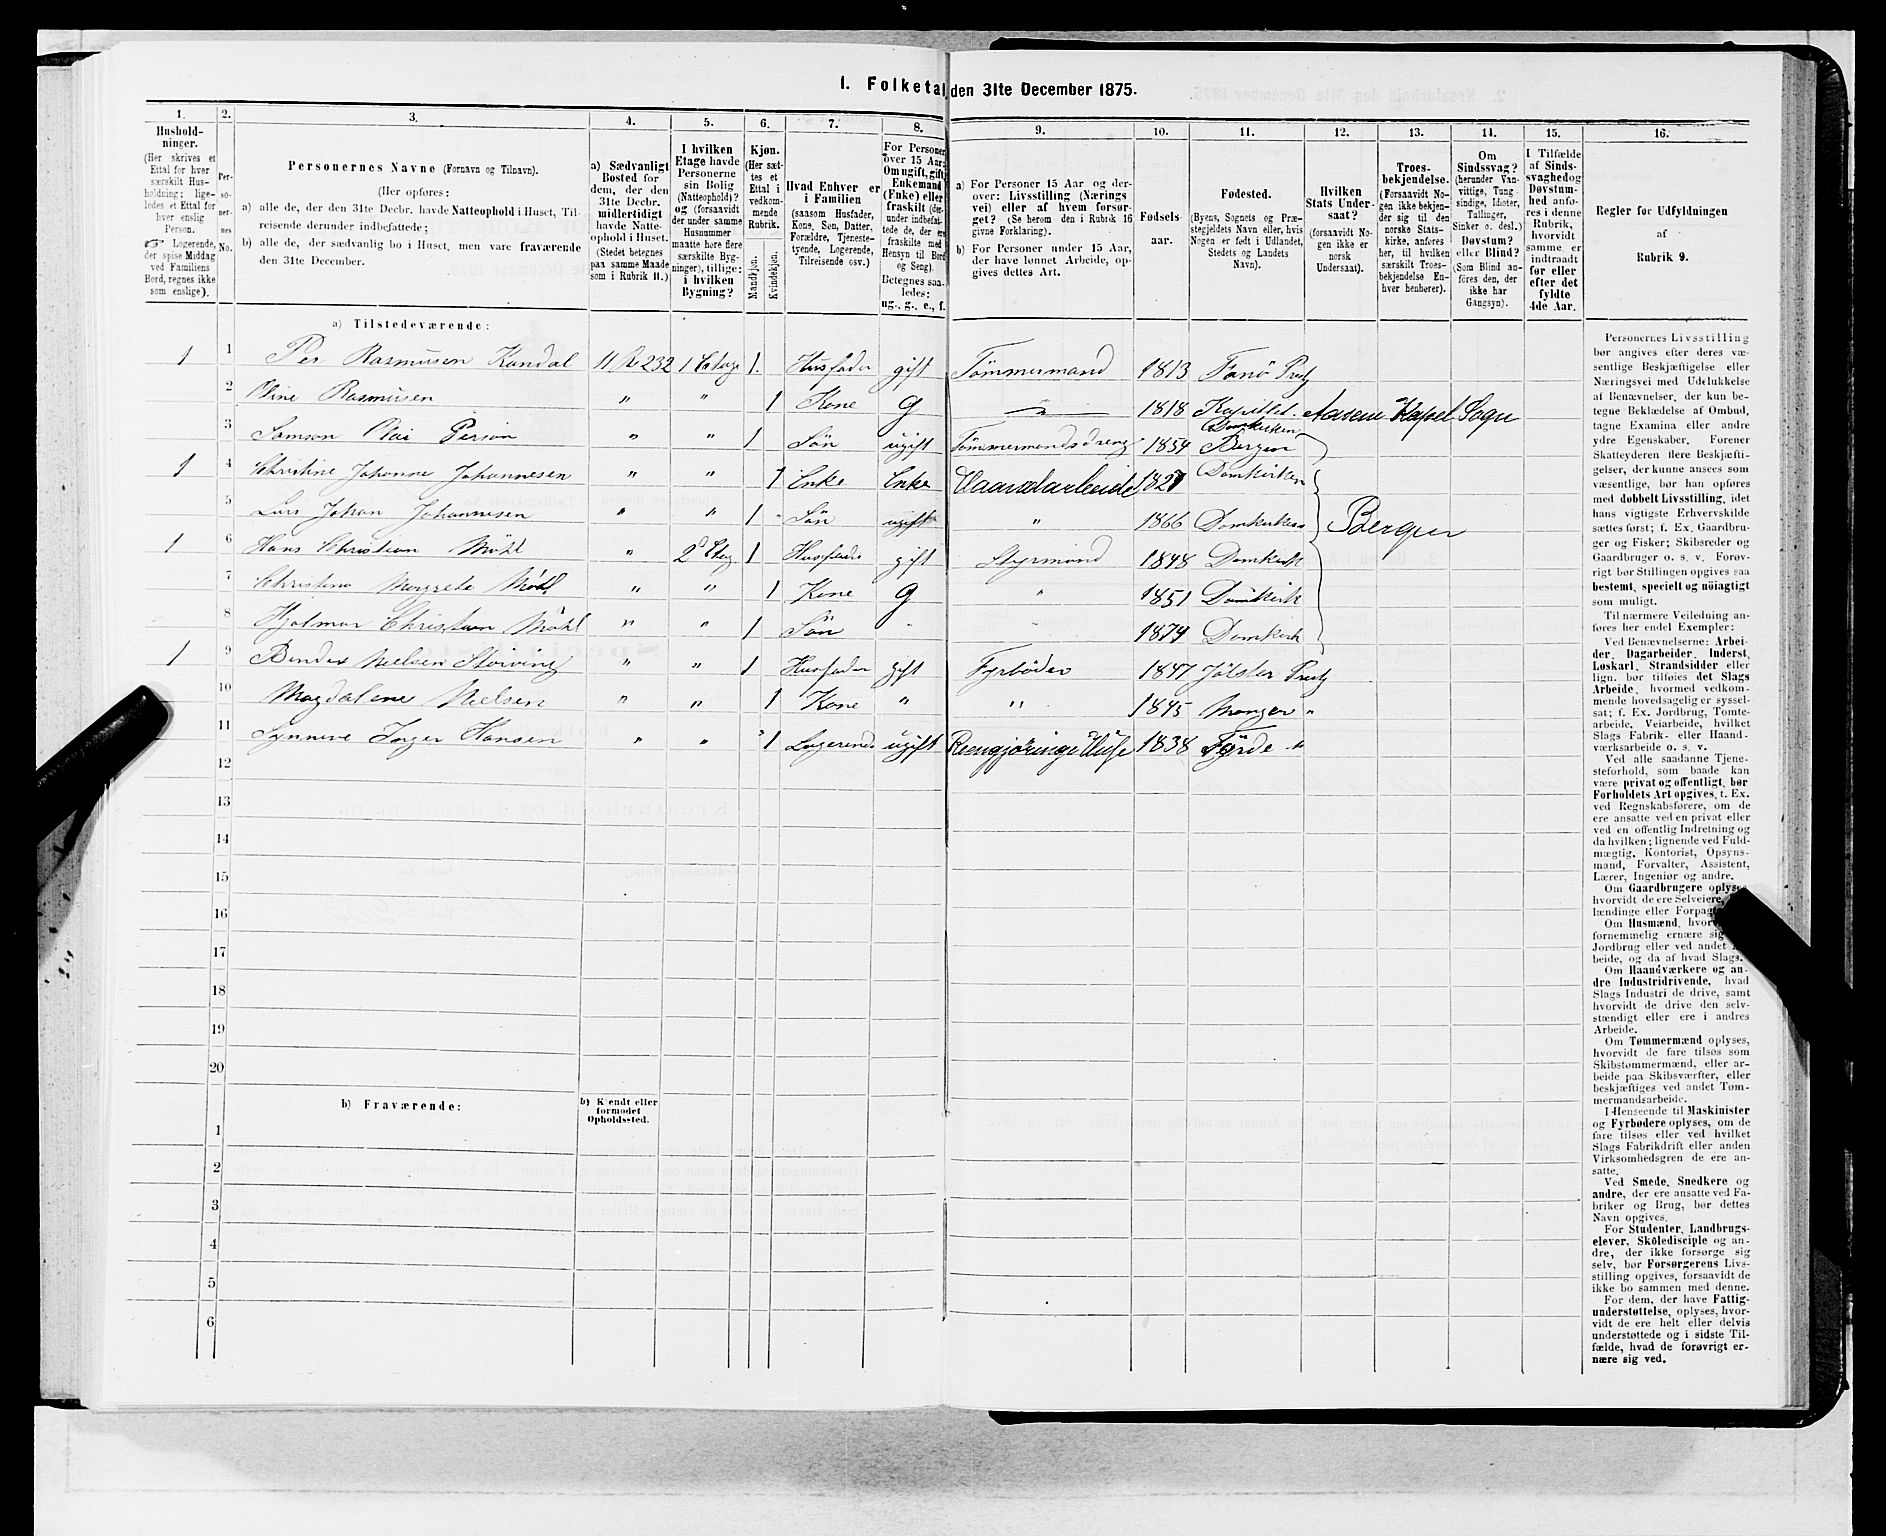 1. Folketal den 31te December 1875.
1. 2. 3. 4. 5. 6. 7. 8. 9. 10. 11. 12. 13. 14. 15. 16.
Hushold-
ninger.
(Her skrives et
Ettal for hver
særskilt Hus-
holdning; lige-
ledes et Ettal for
hver enslig
Person.
☞ Logerende,
der spise Middag
ved Familiens
Bord, regnes ikke
som enslige).
Per-
so-
ner-
nes
No.
Personernes Navne (Fornavn og Tilnavn).
(Her opføres:
a) alle de, der den 31te Decbr. havde Natteophold i Huset, Til-
reisende derunder indbefattede;
b) alle de, der sædvanlig bo i Huset, men vare fraværende
den 31te December.
a) Sædvanligt
Bosted for
dem, der den
31te Decbr.
midlertidigt
havde Natte-
ophold i Huset.
(Stedet betegnes
paa samme Maade
som i Rubrik 11.)
I hvilken
Etage havde
Personerne
sin Bolig
(Natteophold)?
og (forsaavidt
der under samme
Husnummer
maatte høre flere
særskilte Byg-
ninger), tillige:
i hvilken
Bygning?
Kjøn.
(Her sæt-
tes et
Ettal i
vedkom-
mende
Rubrik.
Mandkjøn.
Kvindekjøn.
Hvad Enhver er
i Familien
(saasom Husfader,
Kone, Søn, Datter,
Forældre, Tjeneste-
tyende, Logerende,
Tilreisende osv.)
For Personer
over 15 Aar:
Om ugift, gift,
Enkemand
(Enke) eller
fraskilt (der-
under indbefat-
tede de, der ere
fraskilte med
Hensyn til Bord
og Seng).
Betegnes saa-
ledes:
ug., g., e., f.
a) For Personer 15 Aar og der-
over: Livsstilling (Nærings
vei) eller af hvem forsør-
get? (Se herom den i Rubrik 16
givne Forklaring).
b) For Personer under 15 Aar,
der have lønnet Arbeide, op-
gives dettes Art.
Fødsels-
aar.
Fødested.
(Byens, Sognets og Præ-
stegjeldets Navn eller, hvis
Nogen er født i Udlandet,
Stedets og Landets
Navn).
Hvilken
Stats Under-
saat?
(forsaavidt No-
gen ikke er
norsk
Undersaat).
Troes-
bekjendelse.
(Forsaavidt No-
gen ikke bekjen-
der sig til den
norske Stats-
kirke, anføres
her, til hvilken
særskilt Troes-
bekjendelse En-
hver henhører).
Om
Sindssvag?
(herunder Van-
vittige, Tung-
sindige, Idioter,
Tullinger,
Sinker o. desl.)
Døvstum?
eller Blind?
(Som Blind an-
føres den, der
ikke har
Gangsyn).
I Tilfælde
af Sinds-
svaghed og
Døvstum-
hed anfø-
res i denne
Rubrik,
hvorvidt
samme er
indtraadt
før eller
efter det
fyldte
4de Aar.
Regler for Udfyldningen
af
Rubrik 9.
a) Tilstedeværende:
1 1 Per Rasmusen Kandal 11 R 232 1 Etage 1 Husfader gift Tømmermand 1813 Prestg
2 Oline Rasmusen " " 1 Kone g " 1818 Aasene Kapel Sogn
3 Samson Olai Person " " 1 Søn ugift Tømmermandsdreng 1859 Domkirken Bergen
1 4 Christine Johanne Johannesen " " 1 Enke Enke Haandarbeide 1827 Domkirken
5 Lars Johan Johannesen " " 1 Søn ugift " 1866 Domkirken Bergen
1 6 Hans Christian Möhl " 2 Etag 1 Husfader gift Styrmand 1848 Domkirk
7 Christine Margrete Möhl " " 1 Kone g " 1851 Domkirk
8 Hjalmar Christian Möhl " " 1 Søn " " 1874 Domkirk
1 9 Nielsen " " 1 Husfader gift Fyrbøder 1847 Jølster Prestg
10 Magdalene Nielsen " " 1 Kone " " 1845 Manger "
11 Synneve Inger Hansen " " 1 Logerende ugift Reengjøringi Huse 1838 Førde "
12
13
14
15
16
17
18
19
20
b) Fraværende:
b) Kjendt eller
formodet
Opholdssted.
1
2
3
4
5
6
Personernes Livsstilling
bør angives efter deres væ-
sentlige Beskjæftigelse eller
Næringsvei med Udelukkelse
af Benævnelser, der kun be-
tegne Beklædelse af Ombud,
tagne Examina eller andre
ydre Egenskaber. Forener
Skatteyderen flere Beskjæfti-
gelser, der kunne ansees som
væsentlige, bør han opføres
med dobbelt Livsstilling, idet
hans vigtigste Erhvervskilde
sættes først; f. Ex. Gaardbru-
ger og Fisker; Skibsreder og
Gaardbruger o. s. v. Forøv-
rigt bør Stillingen opgives saa
bestemt, specielt og nöiagtigt
som muligt.
Til nærmere Veiledning an-
føres her endel Exempler:
Ved Benævnelserne: Arbei-
der, Dagarbeider, Inderst,
Løskarl, Strandsidder eller
lign. bør tilføies det Slags
Arbeide, hvormed vedkom-
mende hovedsagelig er syssel-
sat; f. Ex. Jordbrug, Tomte-
arbeide, Veiarbeide, hvilket
Slags Fabrik- eller Haand-
værksarbeide o. s. v.
Ved alle saadanne Tjene-
steforhold, som baade kan
være privat og offentligt, bør
Forholdets Art opgives, t. Ex.
ved Regnskabsførere, om de
ere ansatte ved en privat eller
ved en offentlig Indretning og
da hvilken; lignende ved Fuld-
mægtig, Kontorist, Opsyns-
mand, Forvalter, Assistent,
Lærer, Ingeniør og andre.
Om Gaardbrugere oplyses,
hvorvidt de ere Selveiere,
lændinge eller
Om Husmænd,
fornemmelig ernære sig
Jordbrug eller ved andet
beide, og da af hvad Slags.
Om Haandværkere og an-
dre Industridrivende, hvad
Slags Industri de drive, samt
hvorvidt de drive den selv-
stændigt eller ere i andres
Arbeide.
Om Tømmermænd oplyses,
hvorvidt de fare tilsøs som
Skibstømmermænd, eller ar-
beide paa Skibsværfter, eller
beskjæftiges ved andet Tøm-
mermandsarbeide.
I Henseende til Maskinister
og Fyrbødere oplyses, om de
fare tilsøs eller ved hvilket
Slags Fabrikdrift eller anden
Virksomhedsgren de ere an-
satte.
Ved Smede, Snedkere og
andre, der ere ansatte ved Fa-
briker og Brug, bør dettes
Navn opgives.
For Studenter, Landbrugs-
elever, Skôledisciple og an-
dre, der ikke forsørge sig
selv, bør Forsørgerens Livs-
stilling opgives, forsaavidt de
ikke bo sammen med denne.
For dem, der have Fattig-
understøttelse, oplyses, hvor-
vidt de ere helt eller delvis
understøttede og i sidste Til-
fælde, hvad de forøvrigt er-
nære sig ved.